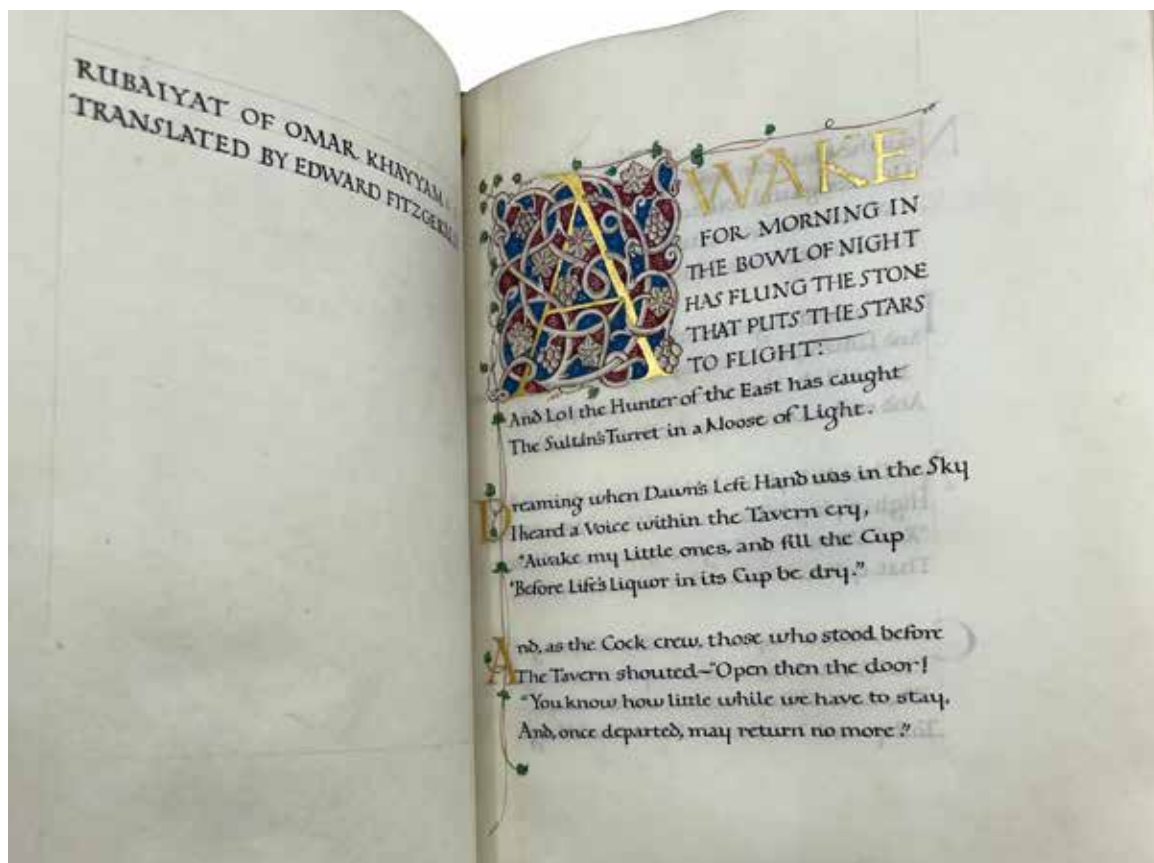 RUBAIYAT OF OMAR KHAYYAM
TRANSLATED BY EDWARD
AWAKE
FOR MORNING IN
THE BOWL OF NIGHT
HAS FLUNG THE STONE
THAT PUTS THE STARS
TO FLIGHT:
And Lo! the Hunter of the East has caught
The Sultán's Turret in a Noose of Light.
Dreaming when Dawn's Left Hand was in the Sky
I heard a Voice within the Tavern cry,
"Awake my Little ones, and fill the Cup
"Before Life's Liquor in its Cup be dry."
And, as the Cock crew, those who stood before
The Tavern shouted—"Open then the door!
"You know how little while we have to stay,
And, once departed, may return no more."